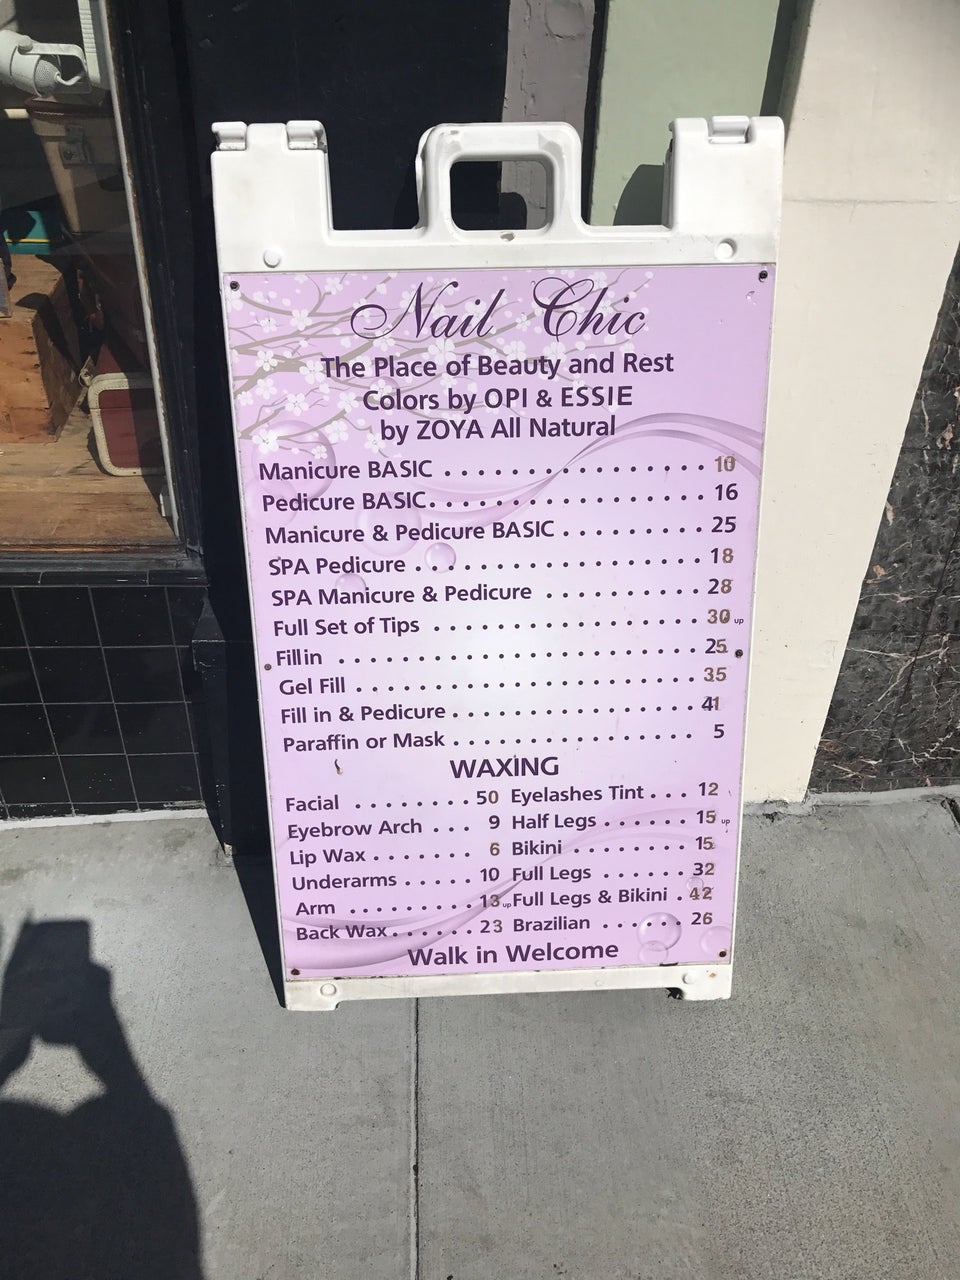 Nail Chic
The Place of Beauty and Rest
Colors by OPI & ESSIE
by ZOYA All Natural
Manicure BASIC . . . . . . . . . . . . . . . . . 10
Pedicure BASIC. . . . . . . . . . . . . . . . . . 16
Manicure & Pedicure BASIC . . . . . . . . . 25
SPA Pedicure . . . . . . . . . . . . . . . . . . . 18
SPA Manicure & Pedicure . . . . . . . . . . 28
Full Set of Tips . . . . . . . . . . . . . . . . . . 30 up
Fill in . . . . . . . . . . . . . . . . . . . . . . . . 25
Gel Fill . . . . . . . . . . . . . . . . . . . . . . . 35
Fill in & Pedicure . . . . . . . . . . . . . . . . 41
Paraffin or Mask . . . . . . . . . . . . . . . . 5
WAXING
Facial . . . . . . . . 50 Eyelashes Tint . . . 12
Eyebrow Arch . . . 9 Half Legs . . . . . . 15 up
Lip Wax . . . . . . . 6 Bikini . . . . . . . . 15
Underarms . . . . . 10 Full Legs . . . . . . 32
Arm . . . . . . . . . 13 up Full Legs & Bikini . 42
Back Wax. . . . . . 23 Brazilian . . . . . . 26
Walk in Welcome